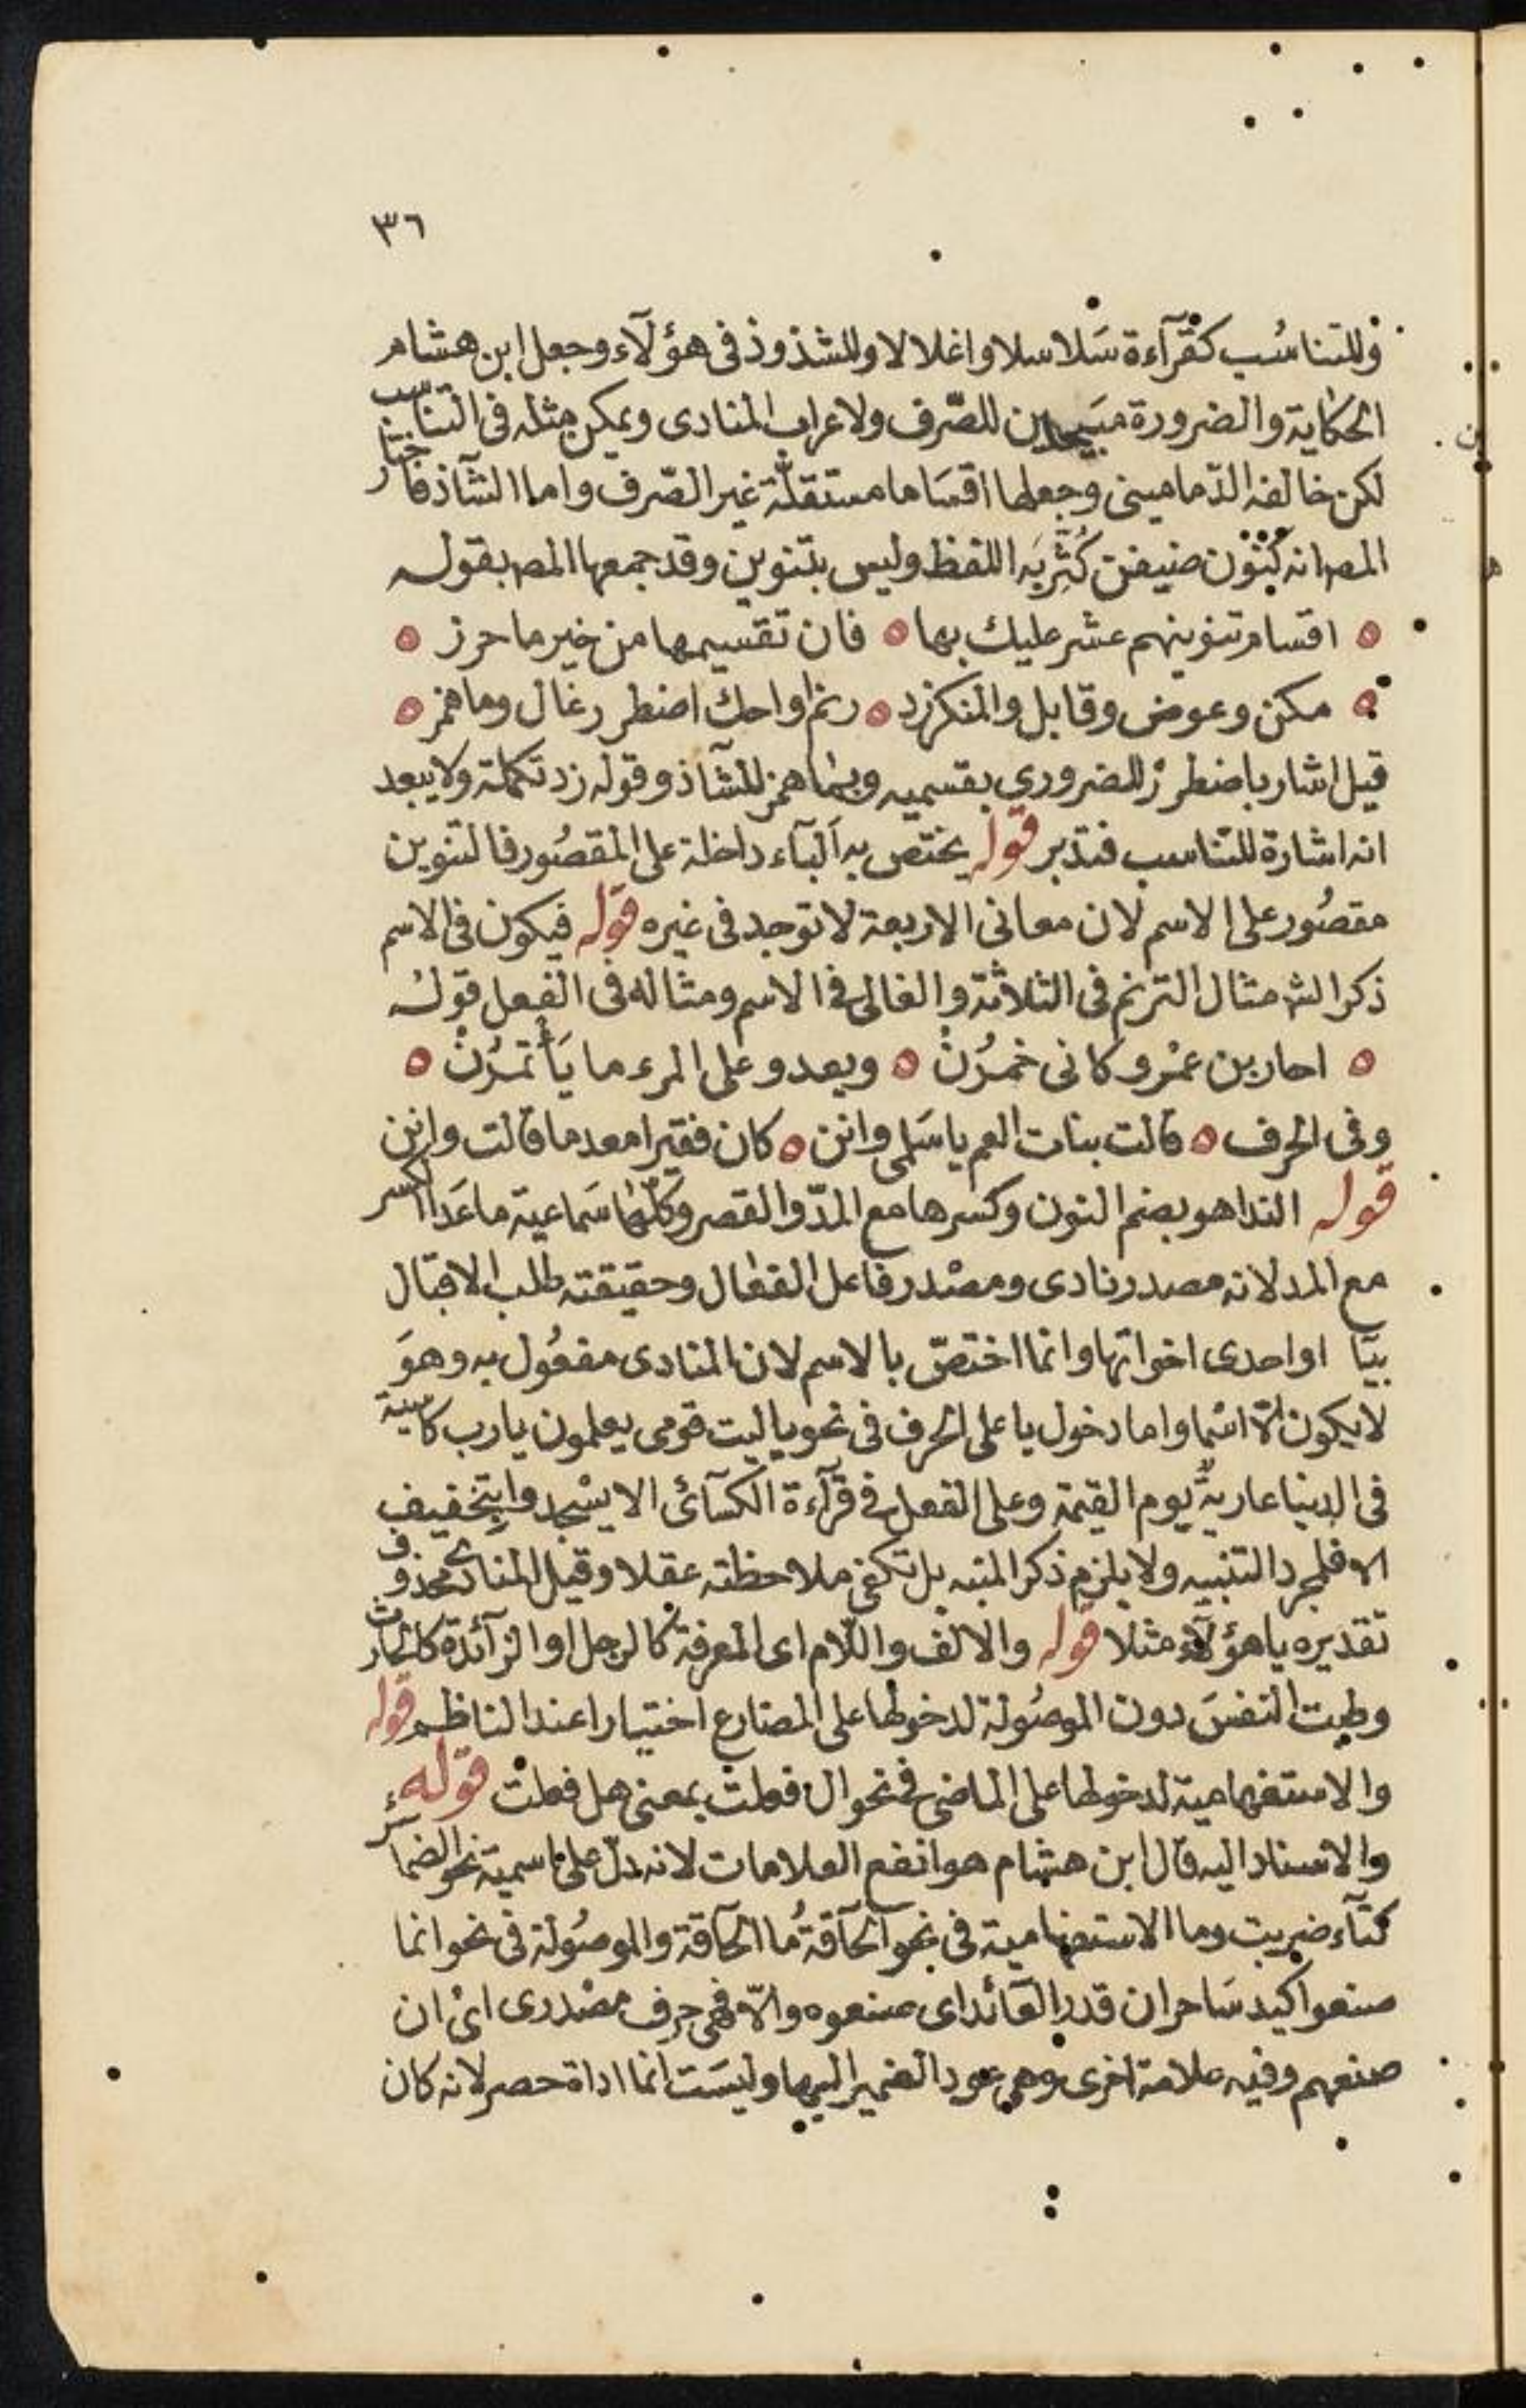 ٣٦
وللتناسُب كقرآءة سَلاسلا واغلالا وللشذوذ فى هؤلآء وجعل ابن هشام
الحكاية والضرورة للصّرف ولاعراب المنادى ويمكن مثله فى التناسب
لكن خالفه الدّمامينى وجعلها اقسَاما مستقلّة غير الصّرف واما الشآذ فاختار
المص انه كنون ضيفن كُثِّر به اللفظ وليس بتنوين وقد جمعها المص بقوله
اقسام تنوينهم عشر عليك بها فان تقسيمها من خير ما حرز
مكن وعوض وقابل والمنكر زد رنم او احك اضطرر غال وما همز
قيل اشار باضطرر للضرورى بقسميه وبما همز للشآذ وقوله زد تكملة ولا يبعد
انه اشارة للتناسب فتدبر قوله يختص به البآء داخلة على المقصُور فالتنوين
مقصُور على الاسم لان معانى الاربعة لا توجد فى غيره قوله فيكون فى الاسم
ذكر الش مثال الترنم فى الثلاثة والغالى فى الاسم ومثاله فى الفعل قولهُ
احار بن عمْرو كانى خمرُنْ ويعدو على المرء ما يَأتمرُنْ
وفى الحرف قالت بنات العم يا سَلمى وانن كان فقيرا معدما قالت وانن
قوله الندا هو بضم النون وكسرها مع المدّ والقصر وكلّها سَماعية ما عَدا الكسر
مع المد لانه مصدر نادى ومصْدر فاعل الفعال وحقيقته طلب الاقبال
بيَا او احدى اخواتها وانما اختصّ بالاسم لان المنادى مفعُول به وهوَ
لا يكون الّا اسْما واما دخول يا على الحرف فى نحو يا ليت قومى يعلمون يا رب كاسية
فى الدنيا عاريةٌ يوم القيمة وعلى الفعل فى قرآءة الكسآئى الا يسْجدوا بتخفيف
الا فلمجرد التنبيه ولا يلزم ذكر المنبه بل تكفى ملاحظته عقلا وقيل المنادى محذوف
تقديره يا هؤلآء مثلا قوله والالف واللّام اى المعرفة كالرجل او الزآئدة كالحارث
وطبت النفسَ دون الموصُولة لدخولها على المضارع اختيارا عند الناظم قوله
والاستفهامية لدخولها على الماضى فى نحو ال فعلت بمعنى هل فعلت قوله
والاسناد اليه قال ابن هشام هو انفع العلامات لانه دلّ على اسمية نحو الضمآئر
كتآء ضربت وما الاستفهامية فى نحو الحآقةُ ما الحآقة والموصُولة فى نحو انما
صنعوا كيد سَاحر ان قدر العآئد اى صنعوه والّا فهى حرف مصْدرى اىْ ان
صنعهم وفيه علامة اخرى وهى عود الضمير اليها وليسَت انما اداة حصر لانه كان